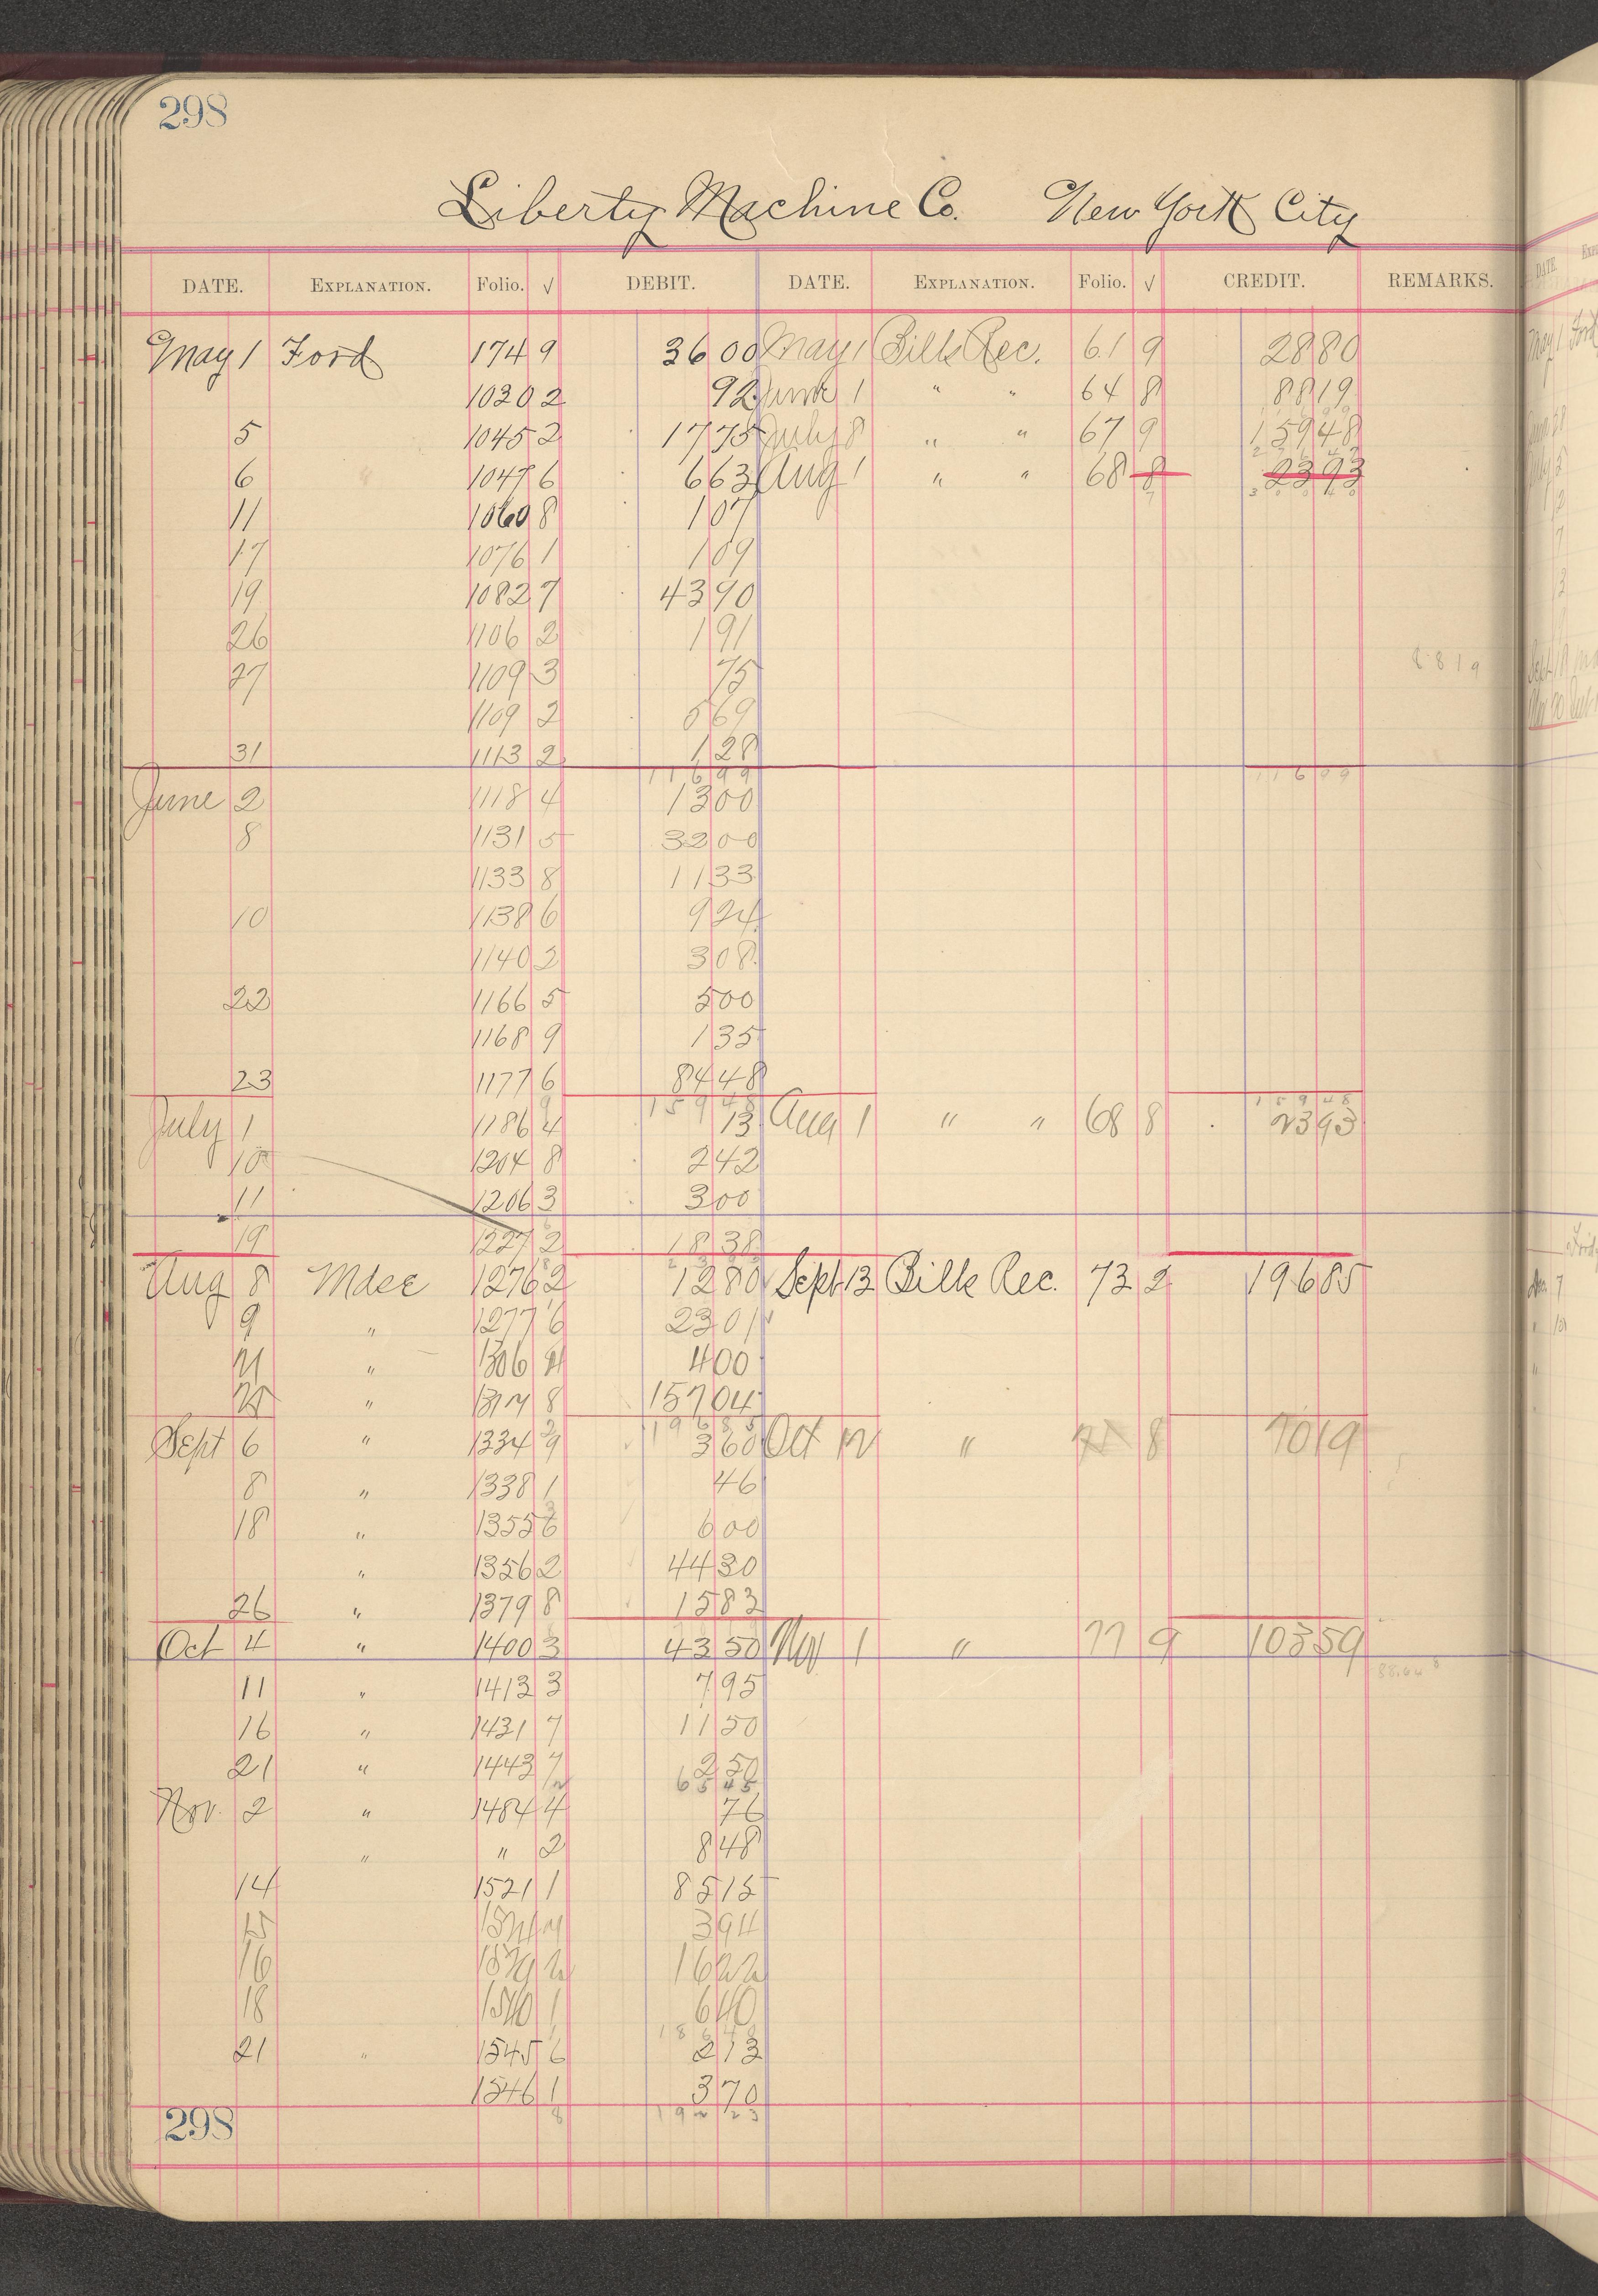 298
Liberty Machine Co. New York City
DATE. EXPLANATION. Folio. √ DEBIT. DATE. EXPLANATION. Folio. √ CREDIT. REMARKS.
May 1 Ford 174 9 36 00 May 1 Bills Rec. 61 9 28 80
1030 2 92 June 1 " " 64 8 88 19
5 1045 2 17 75 July 8 " " 67 9 159 48
6 1047 6 6 63 Aug 1 " " 68 8 23 93
11 1060 8 1 07
17 1076 1 1 09
19 1082 7 43 90
26 1106 2 1 91
27 1109 3 75 8819
1109 2 5 69
31 1113 2 1 28
116 99 116 99
June 2 1118 4 13 00
8 1131 5 32 00
1133 8 11 33
10 1138 6 9 24
1140 2 3 08
22 1166 5 5 00
1168 9 1 35
23 1177 6 84 48
159 48 159 48
July 1 1186 4 13 Aug 1 " " 68 8 23 93
10 1204 8 2 42
11 1206 3 3 00
19 1227 2 18 38
Aug 8 Mdse 1276 2 12 80 Sept 13 Bills Rec. 73 2 196 85
9 " 1277 6 23 01
" 1306 4 00
" 8 157 04
196 85
Sept 6 " 1334 9 3 60 Oct 12 " 8 70 19
8 " 1338 1 46
18 " 1355 6 6 00
" 1356 2 44 30
26 " 1379 8 15 83
Oct 4 " 1400 3 43 50 Nov 1 " 77 9 103 59
11 " 1413 3 7 95
16 " 1431 7 11 50
21 " 1443 7 2 50
65 45
Nov. 2 " 1484 4 76
" " 2 8 48
14 1521 1 85 15
15 3 94
16 16 22
18 1540 1 6 40
21 " 1545 6 2 13
1546 1 3 70
192 23
298